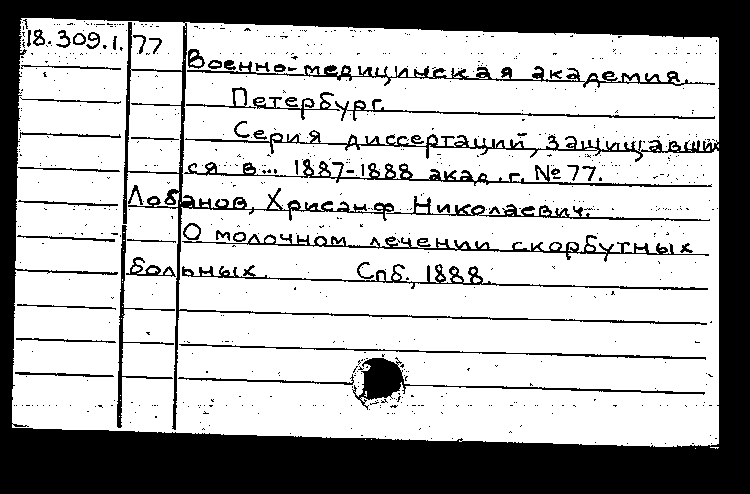 18.309.1. 77
Военно-медицинская академия.
Петербург.
Серия диссертаций, защищавши
ся в... 1887-1888 акад. г. № 77.
Лобанов, Хрисанф Николаевич.
О молочном лечении скорбутных
больных. Спб., 1888.